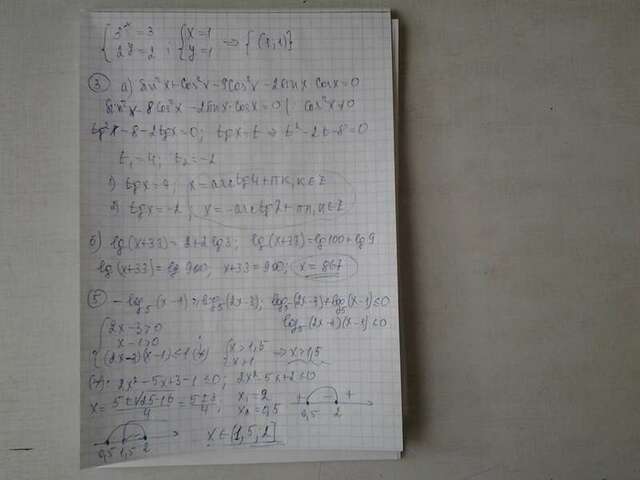 { 3^x = 3 ; { x = 1 ⇒ {(1,1)}
{ 2^y = 2 ; { y = 1
③ а) sin²x + cos²x - 9cos²x - 2sinx cosx = 0
sin²x - 8cos²x - 2sinx·cosx = 0 | : cos²x ≠ 0
tg²x - 8 - 2tgx = 0; tgx = t ⇒ t² - 2t - 8 = 0
t₁ = 4; t₂ = -2
1) tgx = 4, x = arctg4 + πk, k∈Z
2) tgx = -2, x = -arctg2 + πn, n∈Z
б) lg(x+33) = 2 + 2lg3; lg(x+33) = lg100 + lg9
lg(x+33) = lg 900; x+33 = 900; x = 867
⑤ - log₅(x-1) ≥ log₅(2x-3); log₅(2x-3) + log₅(x-1) ≤ 0
log₅(2x-3)(x-1) ≤ 0
{ 2x-3>0
x-1>0 ; { x>1,5
(2x-3)(x-1) ≤ 1 (*) x>1 ⇒ x>1,5
(*): 2x² - 5x + 3 - 1 ≤ 0; 2x² - 5x + 2 ≤ 0
x = (5±√25-16)/4 = (5±3)/4; x₁ = 2 + - +
x₂ = 0,5 0,5 2
0,5 1,5 2 x ∈ (1,5; 2]